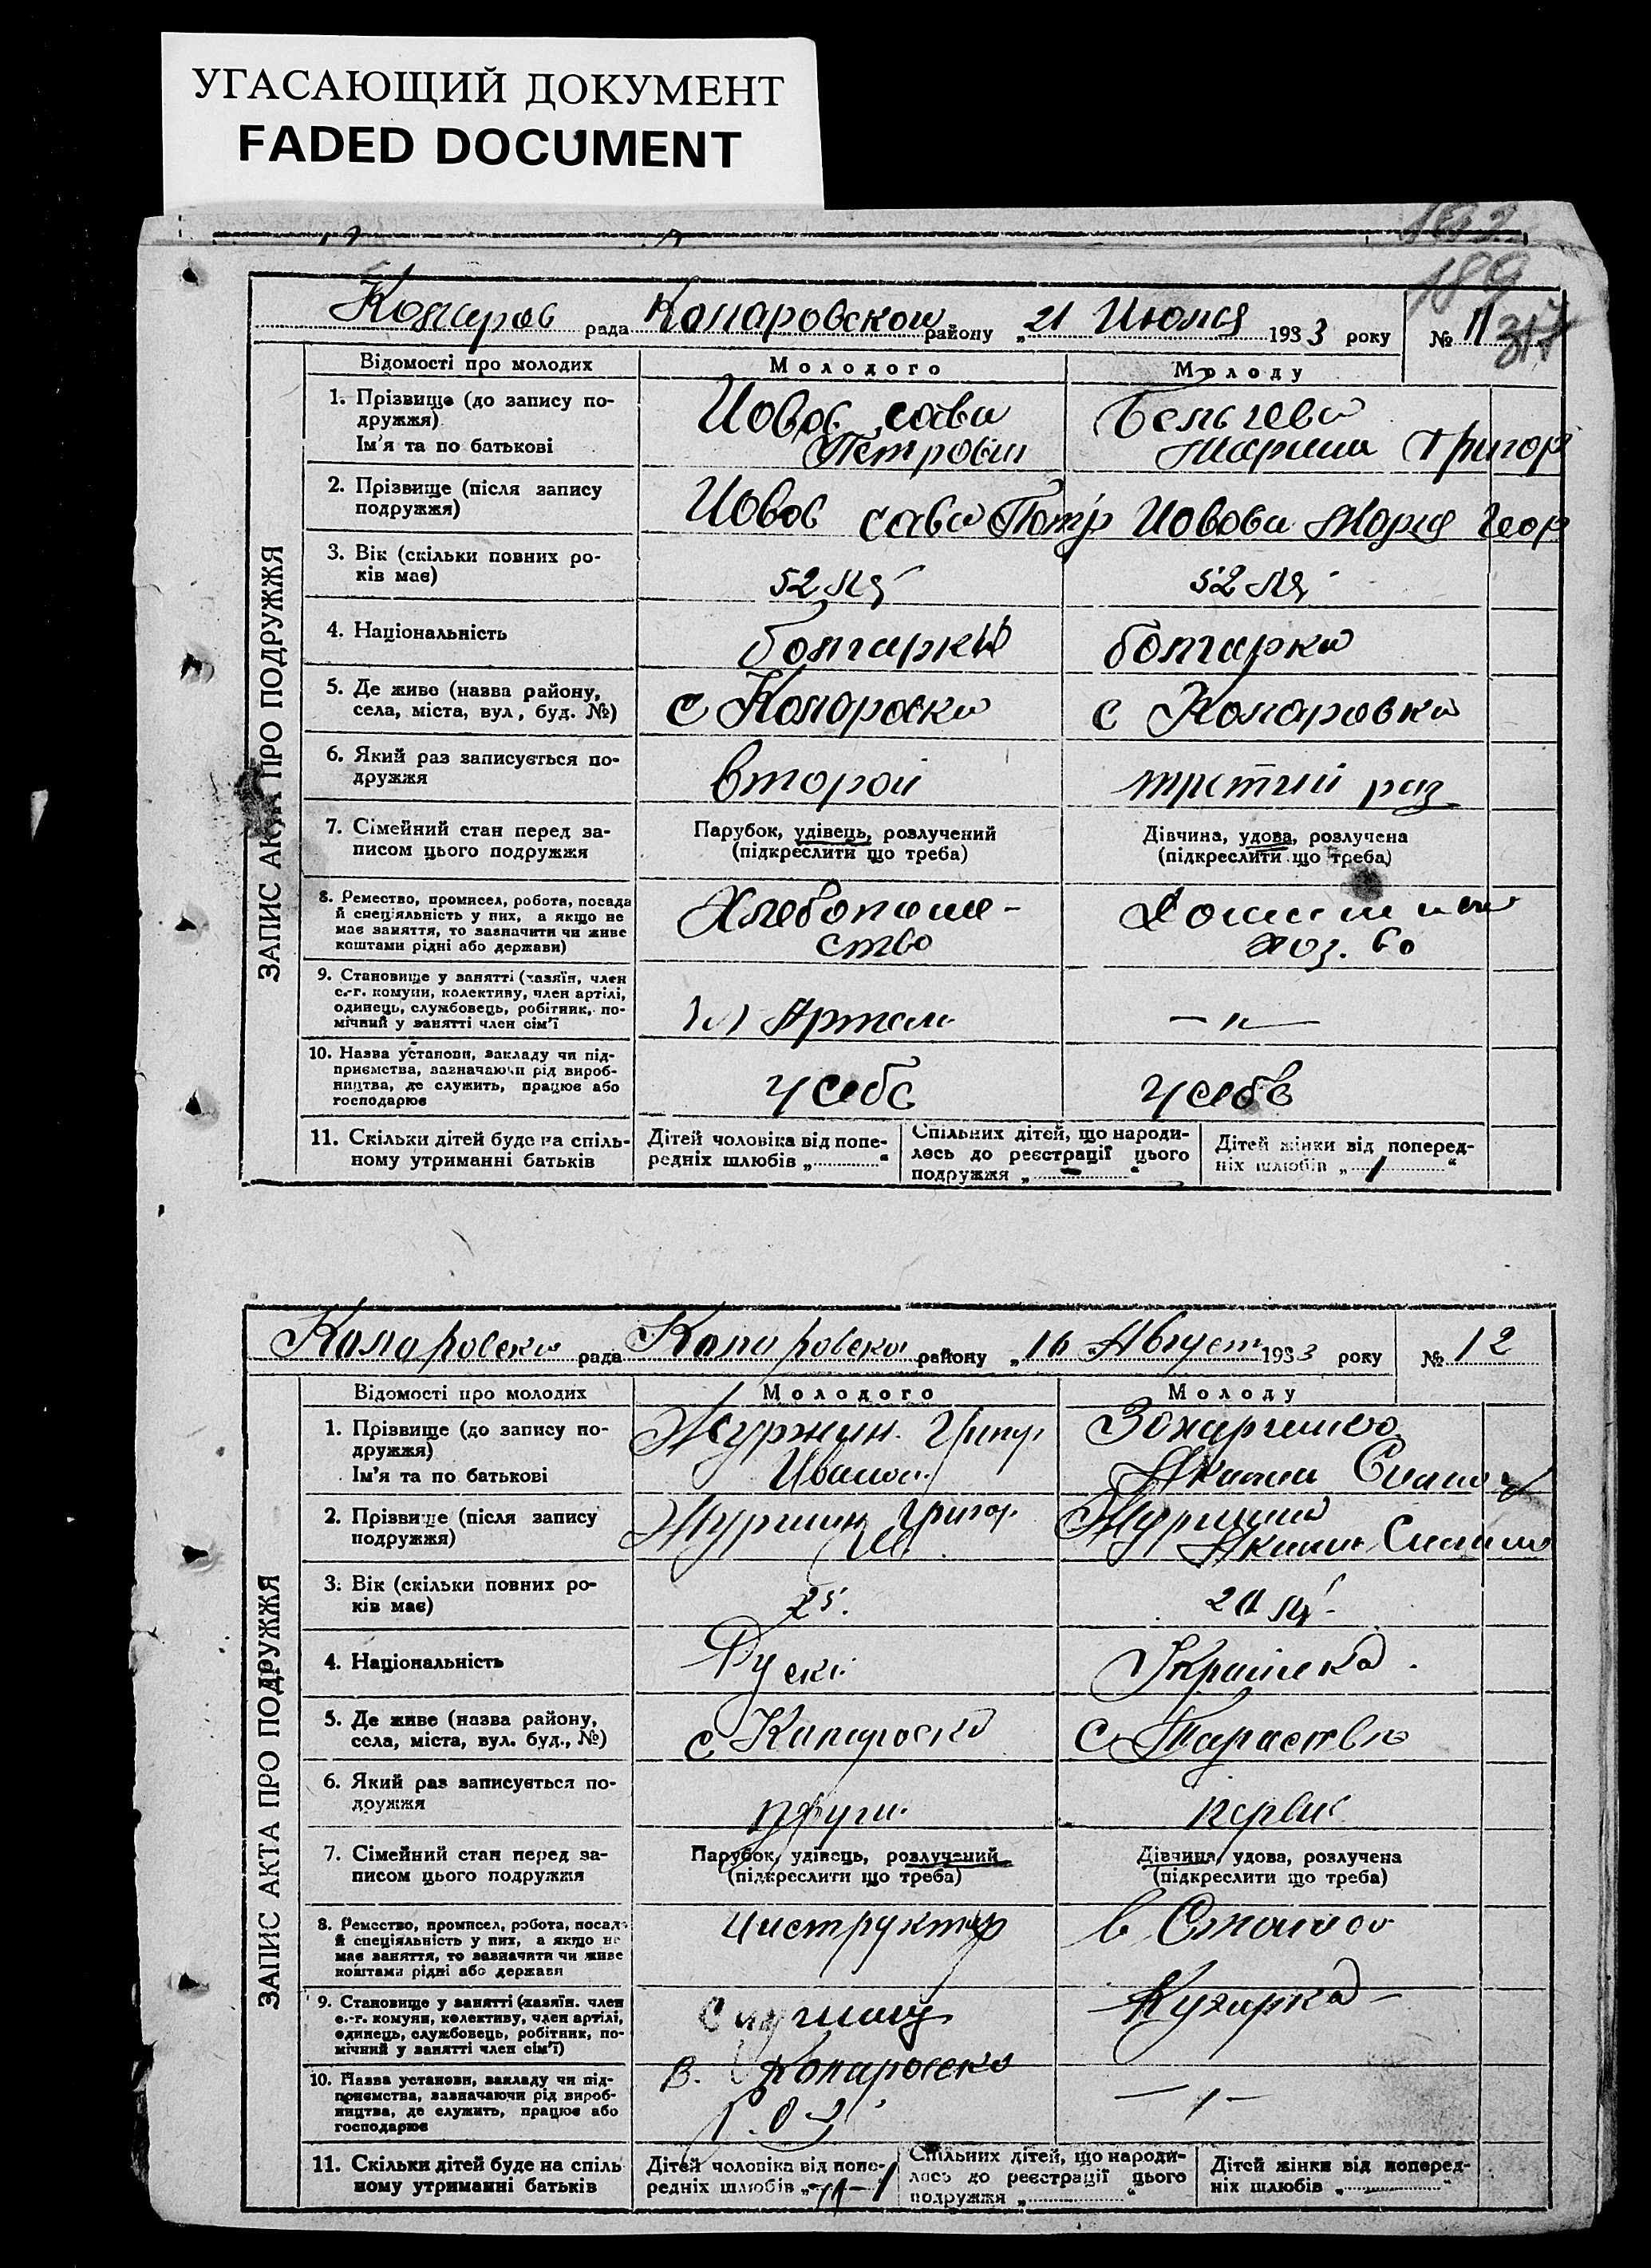 УГАСАЮЩИЙ ДОКУМЕНТ
FADED DOCUMENT
189
Комаров рада Комаровской району „21 Июля 1933 року № 11
317
ЗАПИС АКТА ПРО ПОДРУЖЖЯ
Відомості про молодих Молодого Молоду
1. Прізвище (до запису по-
дружжя)
Ім'я та по батькові
Йовов сава
Петрович
Бельчева
Григор
2. Прізвище (після запису
подружжя)
Йовов сава Петр Йовова Мария Геор
3. Вік (скільки повних ро-
ків має)
52 52
4. Національність
болгарка
5. Де живе (назва району,
села, міста, вул, буд. №)
с Комаровка с Комаровка
6. Який раз записується по-
дружжя
второй третий раз
7. Сімейний стан перед за-
писом цього подружжя
Парубок, удівець, розлучений
(підкреслити що треба)
Дівчина, удова, розлучена
(підкреслити що треба)
8. Ремество, промисел, робота, посада
й спеціяльність у них, а якщо не
має заняття, то зазначити чи живе
коштами рідні або держави)
Хлебопаше-
ство
хоз. во
9. Становище у занятті (хазяїн, член
с.-г. комуни, колективу, член артілі,
одинець, службовець, робітник, по-
мічний у занятті член сім'ї
Артели
— „ —
10. Назва установи, закладу чи під-
приємства, зазначаючи рід вироб-
ництва, де служить, працює або
господарює
у себе у себе
11. Скільки дітей буде на спіль-
ному утриманні батьків
Дітей чоловіка від попе-
редніх шлюбів „ “
Спільних дітей, що народи-
лось до реєстрації цього
подружжя „ — “
Дітей жінки від поперед-
ніх шлюбів „ 1 “
Комаровска рада Комаровска району „16 Август 1933 року № 12
ЗАПИС АКТА ПРО ПОДРУЖЖЯ
Відомості про молодих Молодого Молоду
1. Прізвище (до запису по-
дружжя)
Ім'я та по батькові
2. Прізвище (після запису
подружжя)
Григор.
Ив.
3. Вік (скільки повних ро-
ків має)
25.
4. Національність
Руски Українка.
5. Де живе (назва району,
села, міста, вул. буд., №)
с
с
6. Який раз записується по-
дружжя
други
7. Сімейний стан перед за-
писом цього подружжя
Парубок, удівець, розлучений
(підкреслити що треба)
Дівчина, удова, розлучена
(підкреслити що треба)
8. Ремество, промисел, робота, посада
й спеціяльність у них, а якщо не
має заняття, то зазначити чи живе
коштами рідні або держави
Инструктор в
9. Становище у занятті (хазяїн. член
с.-г. комуни, колективу, член артілі,
одинець, службовець, робітник, по-
мічний у занятті член сім'ї)
Кухарка
10. Назва установи, закладу чи під-
приємства, зазначаючи рід вироб-
ництва, де служить, працює або
господарює
в.
11. Скільки дітей буде на спіль-
ному утриманні батьків
Дітей чоловіка від попе-
редніх шлюбів „
Спільних дітей, що народи-
лось до реєстрації цього
подружжя „ “
Дітей жінки від поперед-
ніх шлюбів „ “